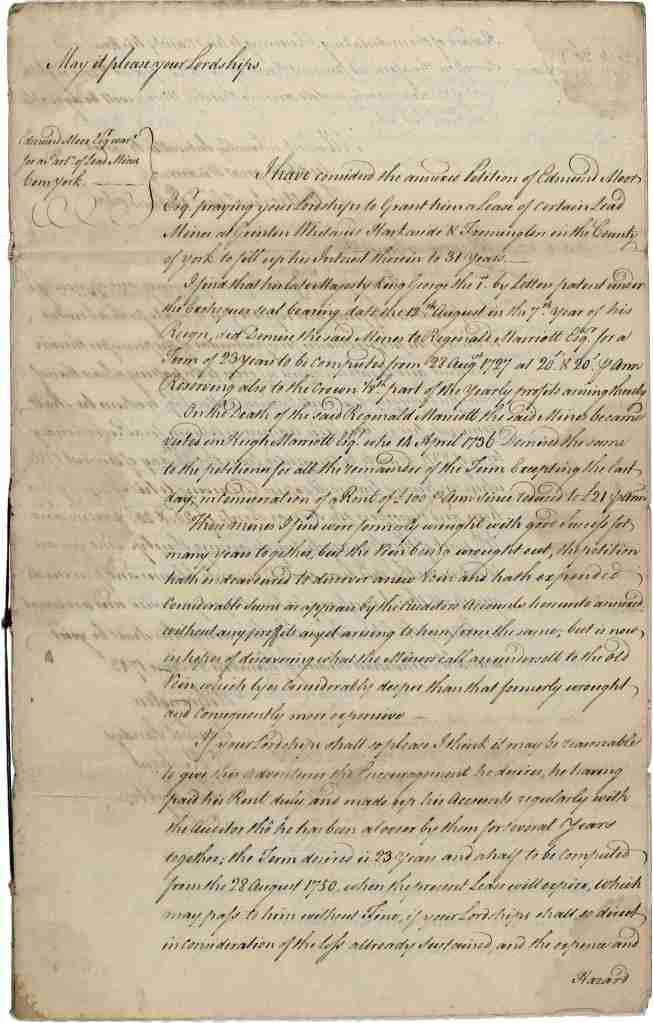 May it please your Lordships.
Edmund Moor Esqr.
for a of Lead Mines
Com York.
I have considerd the annexed Petition of Edmund Moor
Esqr. praying your Lordships to Grant him a Lease of certain Lead
Mines at Grinton Harkaside & Fremington in the County
of York to fill up his Interest therein to 31 Years.
I find that his late Majesty King George the 1st. by Letters patent under
the Exchequer Seal bearing date the 12th August in the 7th Year of his
Reign, did Demise the said Mines to Reginald Marriott Esqr. for a
Term of 23 Years to be computed from 28 Augt 1727 at 20s. & 20s. p Ann
Reserving also to the Crown part of the Yearly profits arising thereby
On the Death of the said Reginald Marriott the said Mines became
vested in Hugh Marriott Esqr. who 14 April 1736 Demised the same
to the petitioner for all the remainder of the Term Excepting the last
day, in Consideration of a Rent of £100 p Ann since reduced to £21 p Ann
These mines I find were formerly wrought with good Success for
many Years together, but the Vein being wrought out, the petitioner
hath endeavoured to discover a new Vein and hath expended
Considerable Sums as appears by the Auditors Accounts hereunto annexed
without any proffits as yet arising to him from the same; but is now
in hopes of discovering what the Miners call an undersett to the old
Vein which lyes Considerably deeper than that formerly wrought
and consequently more expensive
If your Lordships shall so please I think it may be reasonable
to give this Adventurer the Encouragement he desires, he having
paid his Rent duly and made up his Accounts regularly with
the Auditor tho' he has been a looser by them for several Years
together; the Term desired is 23 Years and a half to be computed
from the 28 August 1750. when the present Lease will expire, which
may pass to him without Fine, if your Lordships shall so direct
in consideration of the loss allready sustained, and the expence and
Hazard